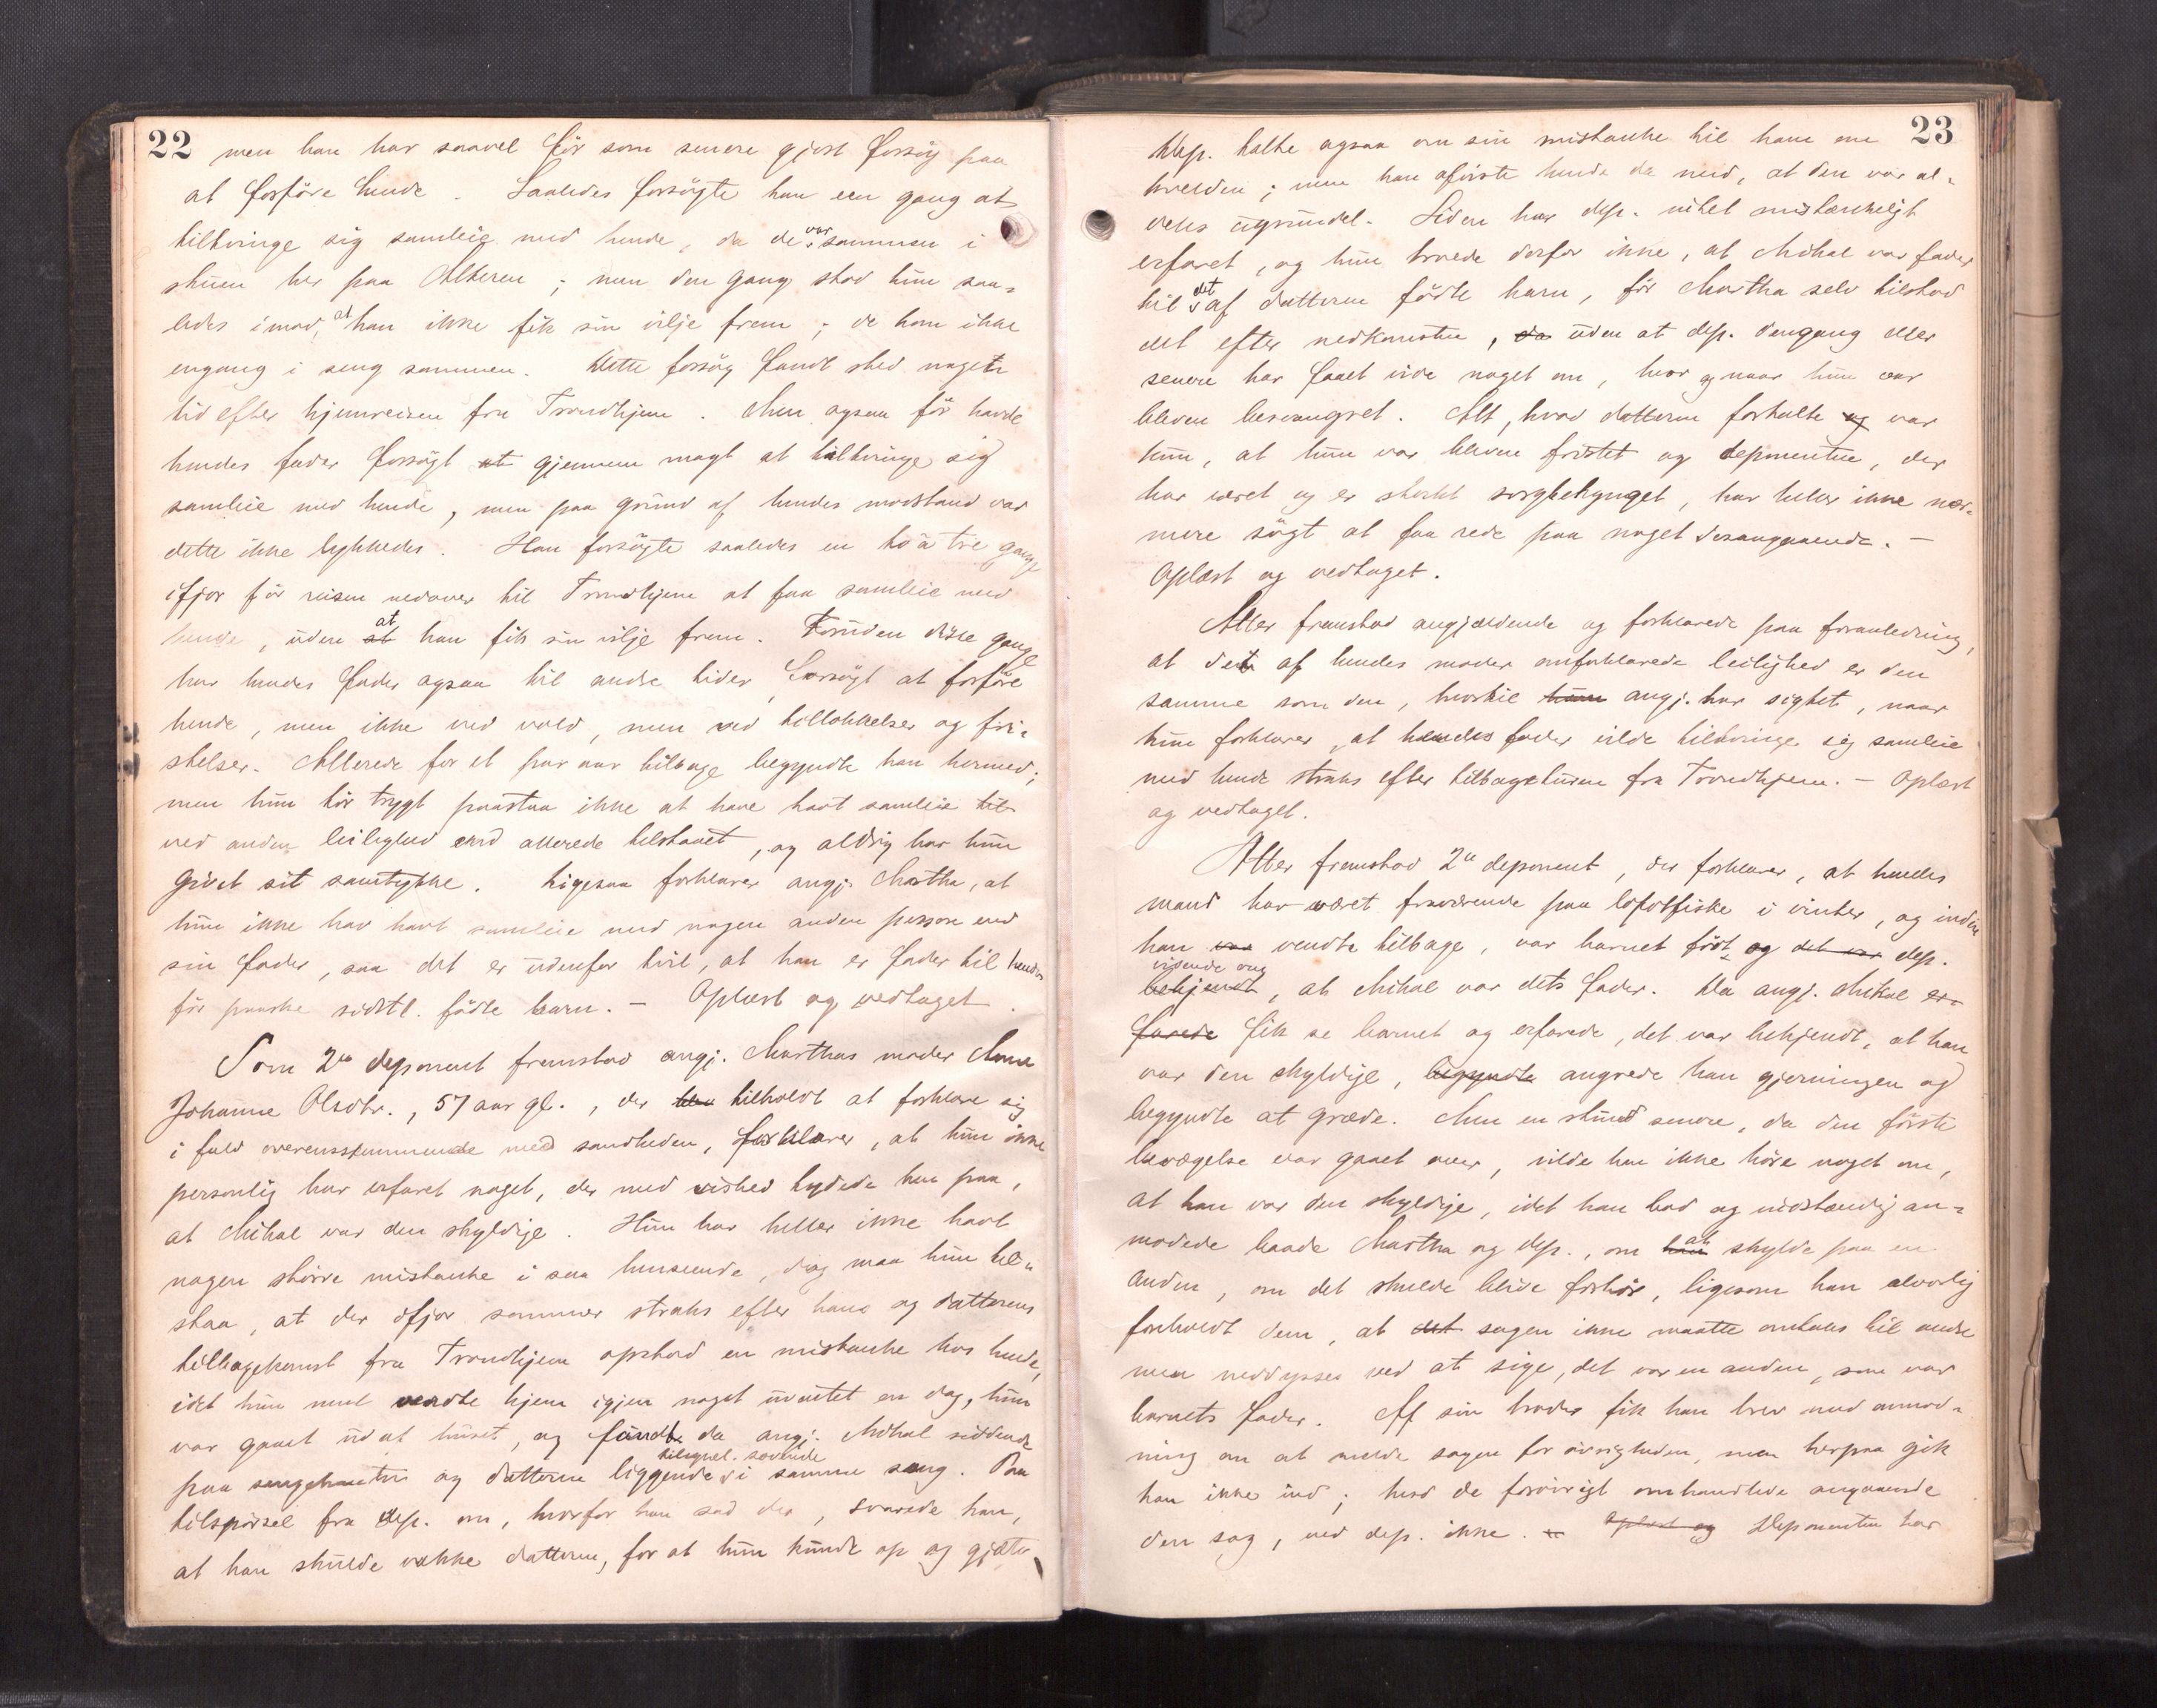 22
men han har saavel før som senere gjort forsøg paa
at forføre hende. Saaledes forsøgte han een gang at
tiltvinge sig samleie med hende, da de var sammen i
stuen her paa Alteren; men den gang stod hun saa-
ledes imod, at han ikke fik sin vilje frem; de kom ikke
engang i seng sammen. Dette forsøg fandt sted nogen
tid efter hjemreisen fra Trondhjem. Men ogsaa før havde
hendes fader forsøgt at gjennem magt at tiltvinge sig
samleie med hende, men paa grund af hendes modstand var
dette ikke lykkedes. Han forsøgte saaledes en to à tre gange
ifjor før reisen nedover til Trondhjem at faa samleie med
hende, uden at at han fik sin vilje frem. Foruden disse gange
har hendes fader ogsaa til andre tider forsøgt at forføre
hende, men ikke ved vold, men ved tillokkelser og fri-
stelser. Allerede for et par aar tilbage begyndte han hermed;
men hun tør trygt paastaa ikke at have havt samleie til
ved anden leilighed end allerede tilstaaet, og aldrig har hun
givet sit samtykke. Ligesaa forklarer angj. Martha, at
hun ikke har havt samleie med nogen anden person end
sin fader, saa det er udenfor tvil, at han er fader til hendes
før paaske sidstl. fødte barn. - Oplæst og vedtaget.
Som 2de deponent fremstod angj. Marthas moder Anna
Johanne Olsdtr., 57 aar gl., der blev tilholdt at forklare sig
i fuld overensstemmende med sandheden, forklarer, at hun ikke
personlig har erfaret noget, der med vished tydede hen paa,
at Mikal var den skyldige. Hun har heller ikke havt
nogen større mistanke i saa henseende, dog maa hun til-
staa, at der ifjor sommer straks efter hans og datterens
tilbagekomst fra Trondhjem opstod en mistanke hos hende,
idet hun med vendte hjem igjen noget uventet en dag, hun
var gaaet ud af huset, og fandt da angj. Mikal siddende
paa sengekanten og datteren liggende tilsynel. sovende i samme seng. Paa
tilspørsel fra dep. om, hvorfor han sad der, svarede han,
at han skulde vække datteren, for at hun kunde op og gjæte
23
Dep. talte ogsaa om sin mistanke til ham om
kvelden; men han afviste hende da med, at den var al-
deles ugrundet. Siden har dep. intet mistænkeligt
erfaret, og hun troede derfor ikke, at Mikal var fader
til det af datteren fødte barn, før Martha selv tilstod
det efter nedkomsten, da uden at dep. dengang eller
senere har faaet vide noget om, hvor og naar hun var
bleven besvangret. Alt, hvad datteren fortalte og var
kun, at hun var bleven fristet og deponentne, der
har været og er sterkt sorgbetynget, har heller ikke nær-
mere søgt at faa rede paa noget desangaaende. -
Oplæst og vedtaget.
Atter fremstod angjældende og forklarede paa foranledning,
at det af hendes moder omforklarede leilighed er den
samme som den, hvortil hun angj. har sigtet, naar
hun forklarer, at hendes fader vilde tiltvinge sig samleie
med hende straks efter tilbageturen fra Trondhjem. - Oplæst
og vedtaget.
Atter fremstod 2de deponent, der forklarer, at hendes
mand har været fraværende paa lofotfiske i vinter, og inden
han var vendte tilbage, var barnet født, og det var dep.
vidende om
bekjendt, at Mikal var dets fader. Da angj. Mikal er-
farede fik se barnet og erfarede, det var bekjendt, at han
var den skyldige, begyndte angrede han gjerningen og
begyndte at græde. Men en stund senere, da den første
bevægelse var gaaet over, vilde han ikke høre noget om,
at han var den skyldige, idet han bad og indstændig an-
modede baade Martha og dep., om han at skylde paa en
anden, om det skulde blive forhør, ligesom han alvorlig
foreholdt dem, at det sagen ikke maatte omtales til andre
men neddysses ved at sige, det var en anden, som var
barnets fader. Af sin broder fik han brev med anmod-
ning om at melde sagen for øvrigheden, men herpaa gik
han ikke ind; hvad de forøvrigt omhandlede angaaende
den sag, ved dep. ikke. Oplæst og Deponenten har